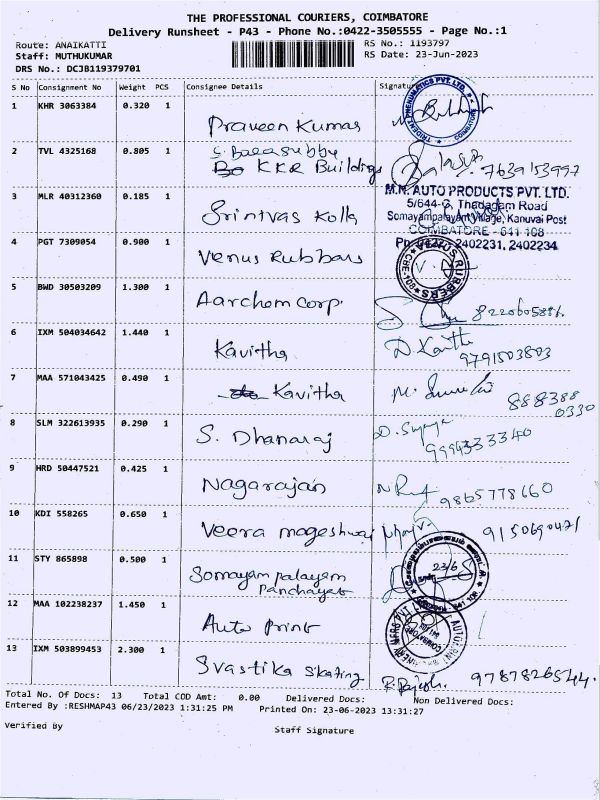 THE PROFESSIONAL COURIERS, COIMBATORE
Delivery Runsheet - P43 - Phone No.:0422-3505555 - Page No.:1
Route: ANAIKATTI
RS No.: 1193797
Staff: MUTHUKUMAR
RS Date: 23-Jun-2023
DRS No.: DCJB119379701
S No Consignment No Weight PCS Consignee Details Signature
1 KHR 3063384 0.320 1
TRIDENT PNEUMATICS PVT. LTD. COIMBATORE
Praveen Kumar
2 TVL 4325168 0.805 1 S. Balasubbu
KKR Buildings 7639153997
3 MLR 40312360 0.185 1 Srinivas Kolla
M.N. AUTO PRODUCTS PVT. LTD.
5/644-G, Thadagam Road
Somayampalayam Village, Kanuvai Post
COIMBATORE - 641 108
2402231, 2402234
4 PGT 7309054 0.900 1 Venus Rubbars
VENUS RUBBERS
5 BWD 30503209 1.300 1
Aarchem Corp.
6 IXM 504034642 1.440 1
Kavitha 9791503803
7 MAA 571043425 0.490 1
Kavitha 888388
0330
8 SLM 322613935 0.290 1
S. Dhanaraj 9994333340
9 HRD 50447521 0.425 1
Nagarajan 9865778660
10 KDI 558265 0.650 1
Veera mageshwari 9150690421
11 STY 865898 0.500 1
Somayam palayam
Panchayat
23/6
12 MAA 102238237 1.450 1
Auto Print
13 IXM 503899453 2.300 1
Svastika Skating R. Rajesh. 9787826544.
Total No. Of Docs: 13 Total COD Amt: 0.00 Delivered Docs: Non Delivered Docs:
Entered By :RESHMAP43 06/23/2023 1:31:25 PM Printed On: 23-06-2023 13:31:27
Verified By
Staff Signature